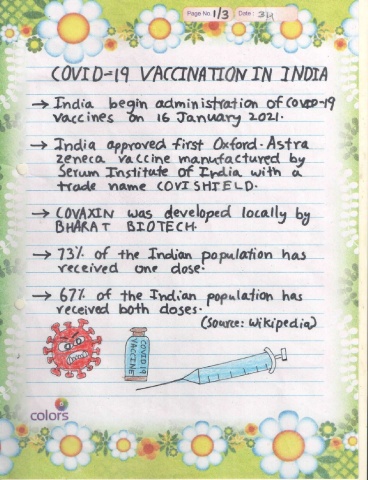 Page No. 1/3 Date:
COVID-19 VACCINATION IN INDIA
→ India begin administration of COVID-19
vaccines on 16 January 2021.
→ India approved first Oxford. Astra
zeneca vaccine manufactured by
Serum Institute of India with a
trade name COVISHIELD.
→ COVAXIN was developed locally by
BHARAT BIOTECH.
→ 73% of the Indian population has
received one dose.
→ 67% of the Indian population has
received both doses.
(Source: Wikipedia)
COVID19
VACCINE
colors